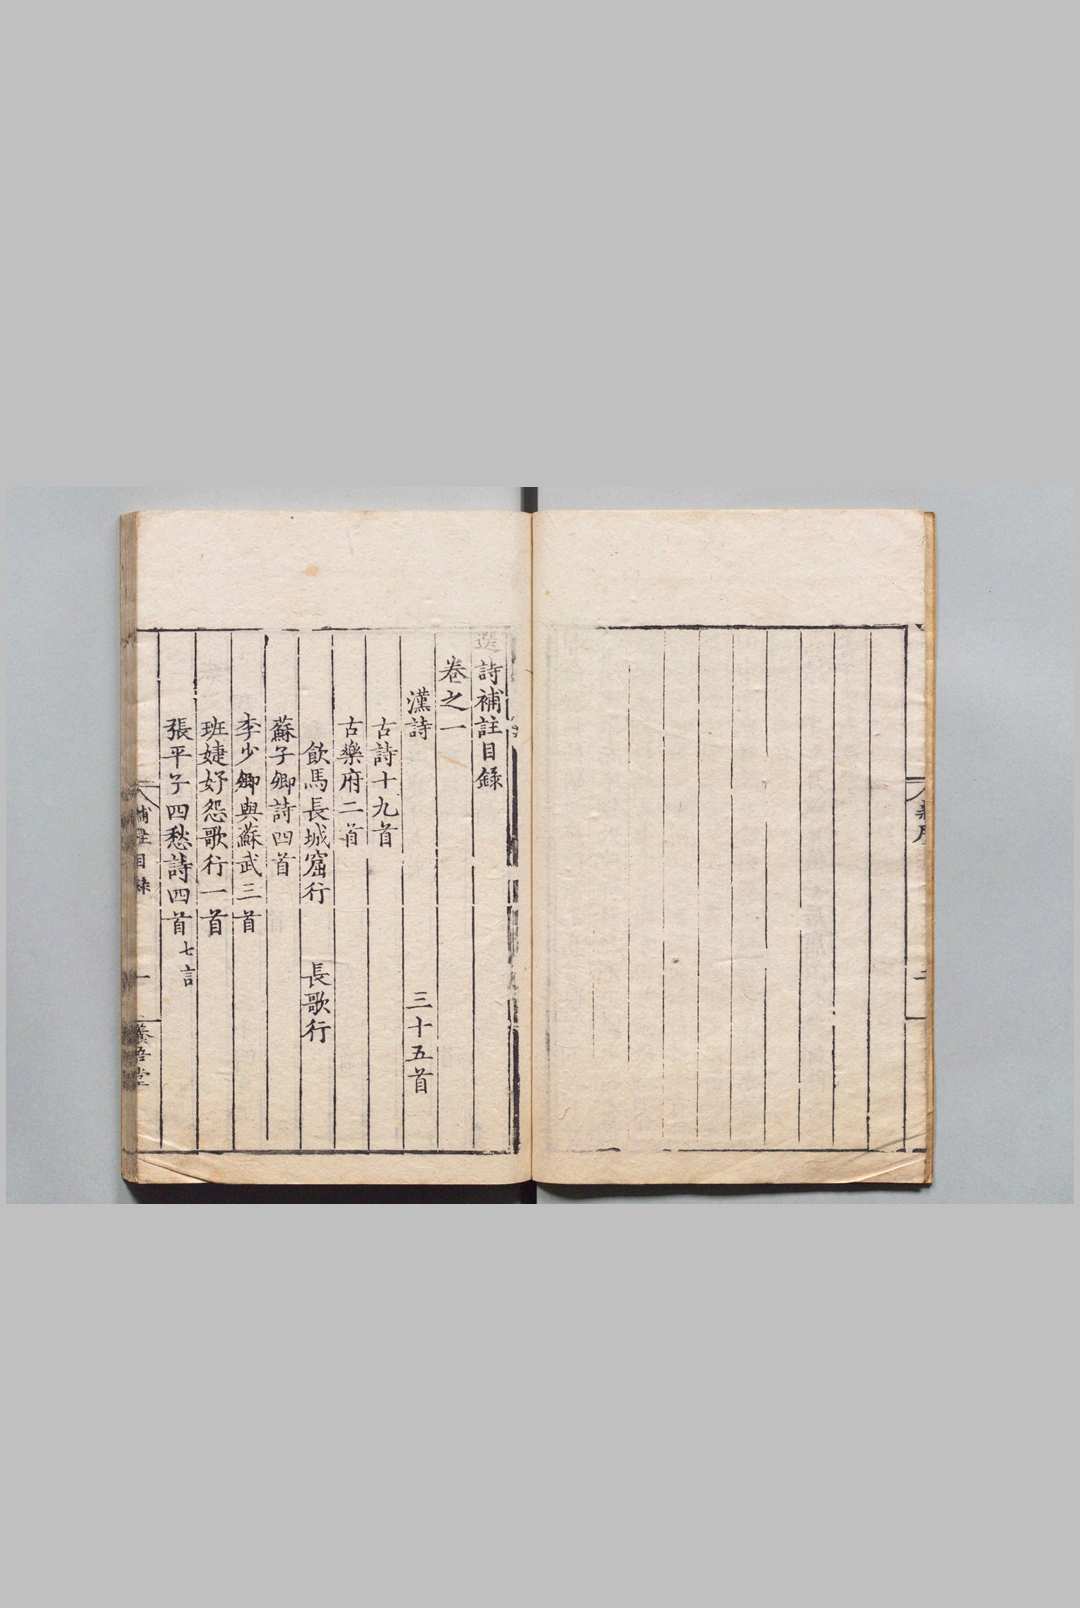 選詩補註目錄
卷之一
漢詩 三十五首
古詩十九首
古樂府二首
飲馬長城窟行 長歌行
蘇子卿詩四首
李少卿與蘇武三首
班婕妤怨歌行一首
張平子四愁詩四首 七言
補註目錄 一 養吾堂